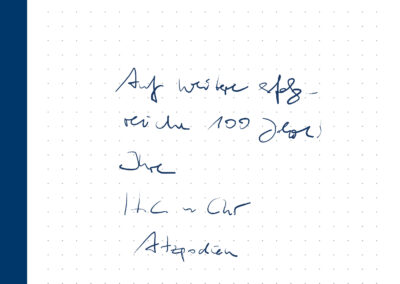 Auf weitere erfolg-
reiche 100 Jahre!
Ihre
Atzpodien